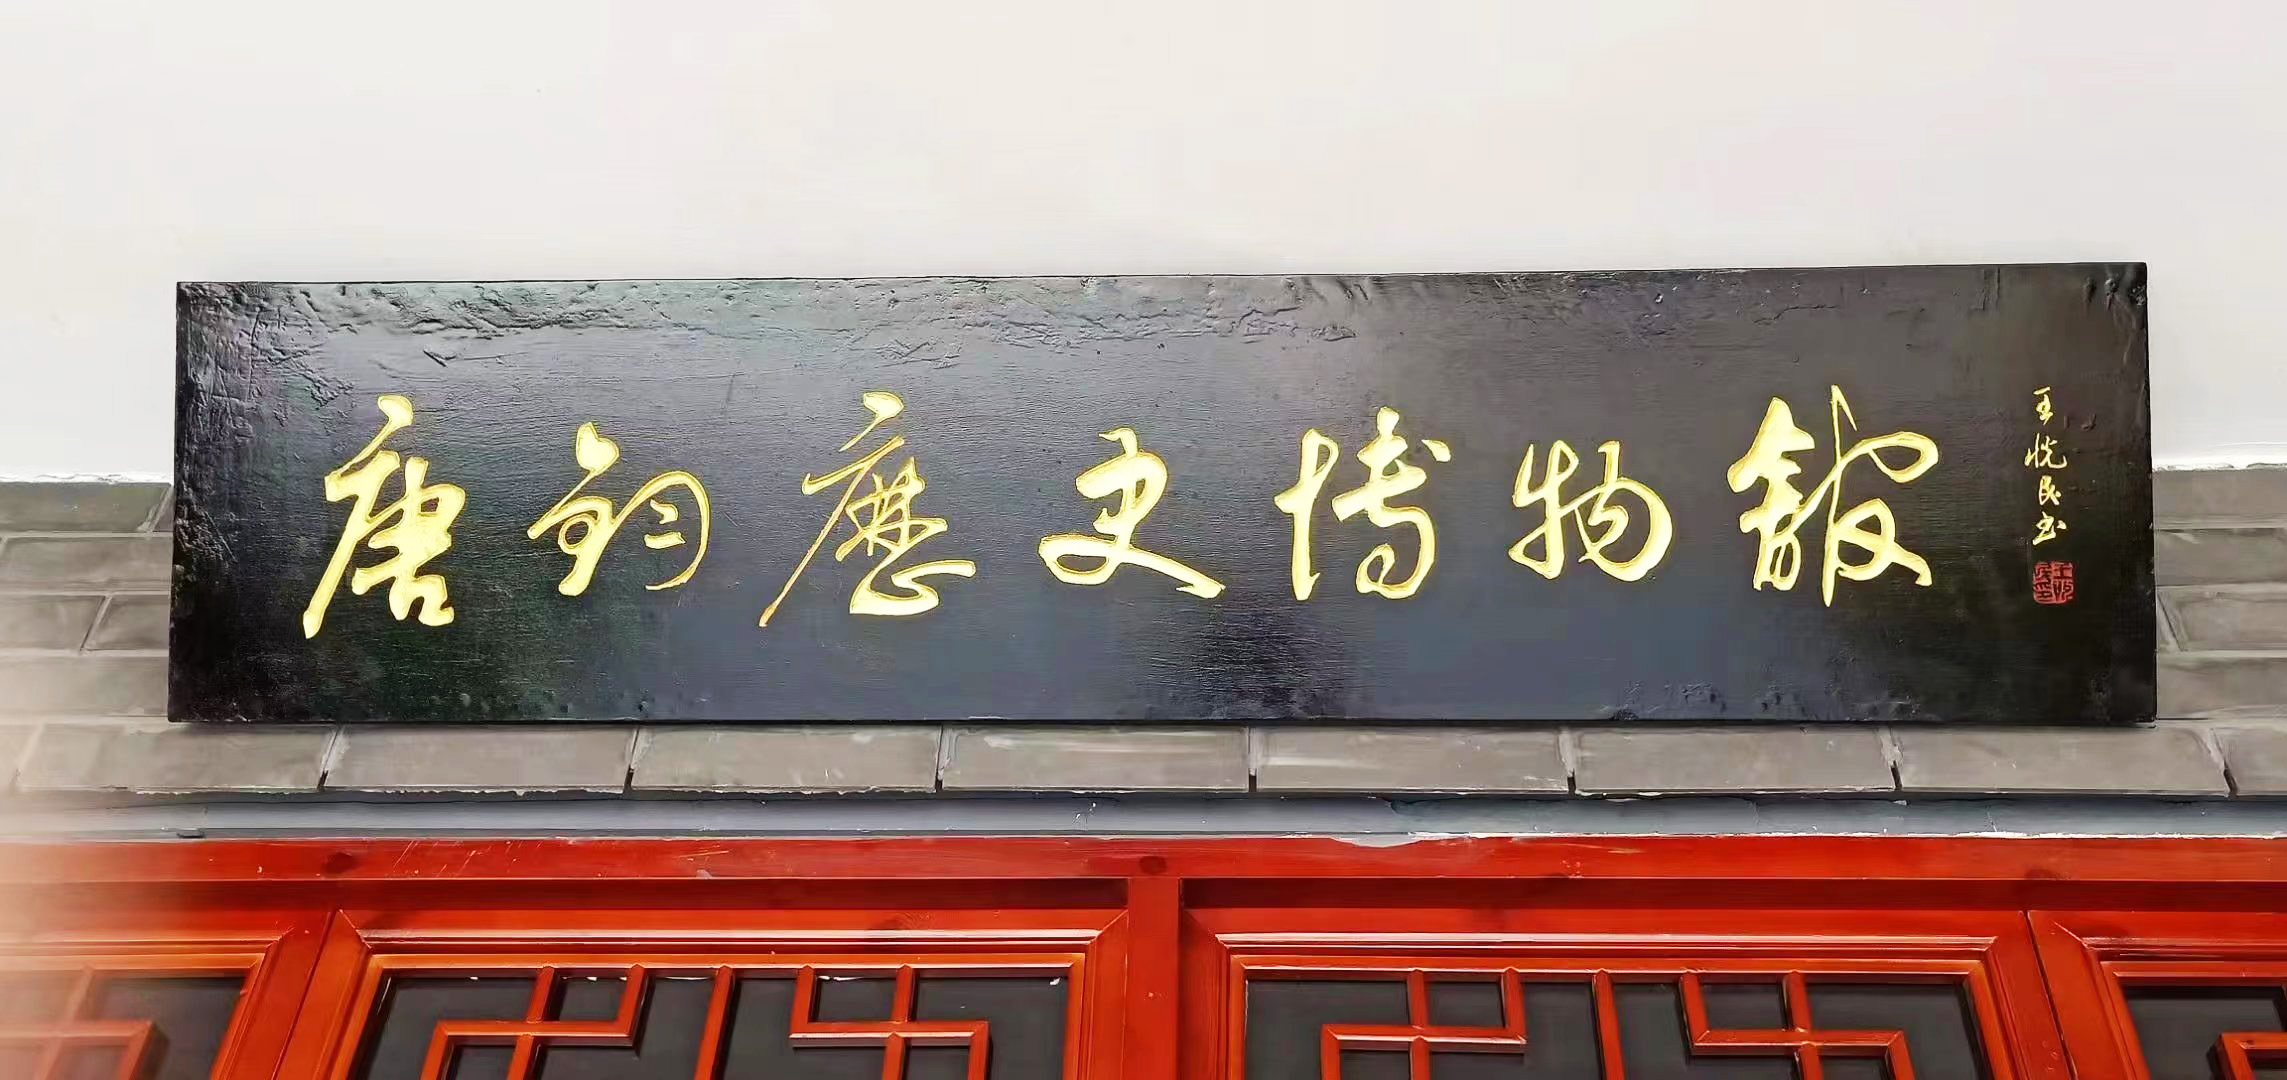 唐鈞歷史博物館
王悦民书